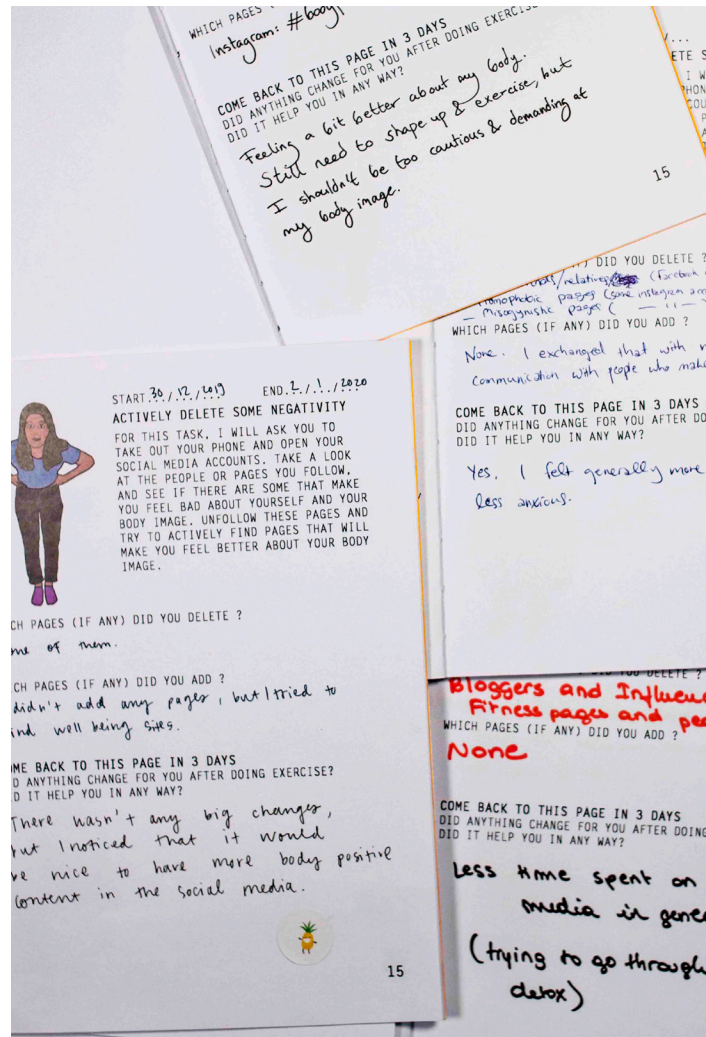 WHICH PAGES
Instagram: #body
COME BACK TO THIS PAGE IN 3 DAYS
DID ANYTHING CHANGE FOR YOU AFTER DOING EXERCISE
DID IT HELP YOU IN ANY WAY?
Feeling a bit better about my body.
Still need to shape up & exercise, but
I shouldn't be too cautious & demanding at
my body image.
15
DID YOU DELETE ?
/relatives (Facebook
Homophobic pages (some instagram
– Misogynistic pages ( — 11 —
WHICH PAGES (IF ANY) DID YOU ADD ?
None. I exchanged that with
communication with people who
COME BACK TO THIS PAGE IN 3 DAYS
DID ANYTHING CHANGE FOR YOU AFTER DO
DID IT HELP YOU IN ANY WAY?
Yes. I felt generally more
less anxious.
START.30./.12./.2019 END.2./.1./.2020
ACTIVELY DELETE SOME NEGATIVITY
FOR THIS TASK, I WILL ASK YOU TO
TAKE OUT YOUR PHONE AND OPEN YOUR
SOCIAL MEDIA ACCOUNTS. TAKE A LOOK
AT THE PEOPLE OR PAGES YOU FOLLOW,
AND SEE IF THERE ARE SOME THAT MAKE
YOU FEEL BAD ABOUT YOURSELF AND YOUR
BODY IMAGE. UNFOLLOW THESE PAGES AND
TRY TO ACTIVELY FIND PAGES THAT WILL
MAKE YOU FEEL BETTER ABOUT YOUR BODY
IMAGE.
CH PAGES (IF ANY) DID YOU DELETE ?
me of them.
CH PAGES (IF ANY) DID YOU ADD ?
didn't add any pages, but I tried to
ind well being sites.
ME BACK TO THIS PAGE IN 3 DAYS
D ANYTHING CHANGE FOR YOU AFTER DOING EXERCISE?
D IT HELP YOU IN ANY WAY?
There wasn't any big changes,
but I noticed that it would
be nice to have more body positive
content in the social media.
15
YOU DELETE ?
Bloggers and Influe
Fitness pages and pe
WHICH PAGES (IF ANY) DID YOU ADD ?
None
COME BACK TO THIS PAGE IN 3 DAYS
DID ANYTHING CHANGE FOR YOU AFTER DOING
DID IT HELP YOU IN ANY WAY?
Less time spent on
media in gene
(trying to go through
detox)